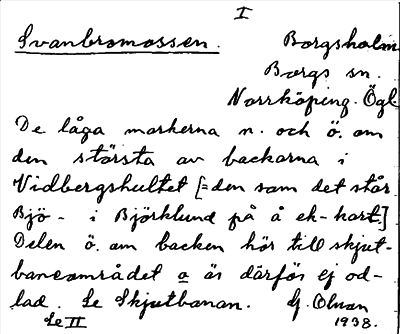 I
Svanbromossen. Borgsholm
Borgs sn.
Norrköping. Ögl.
De låga markerna n. och ö. om
den största av backarna i
Vidbergshultet [= den som det står
Bjö- i Björklund på å ek-kart.]
Delen ö. om backen hör till skjut-
baneområdet o är därför ej od-
lad. Se Skjutbanan. G. Olsson
Se II 1938.